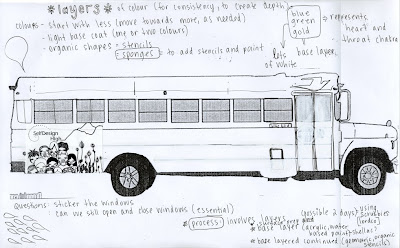 *layers* of colour (for consistency, to create depth)
colours - start with less (move towards more, as needed)
- light base coat (one or two colours)
- organic shapes = stencils
= sponges = to add stencils and paint
blue
green
gold
represents
heart and
throat chakra
base layer
lots
of white
SelfDesign
High
Questions: sticker the windows
can we still open and close windows (essential)
*process: involves layers
(possible 2 days)
using
scrubbies
* base layer (acrylic, water
based paint
* base layered continued (organic
stencils)